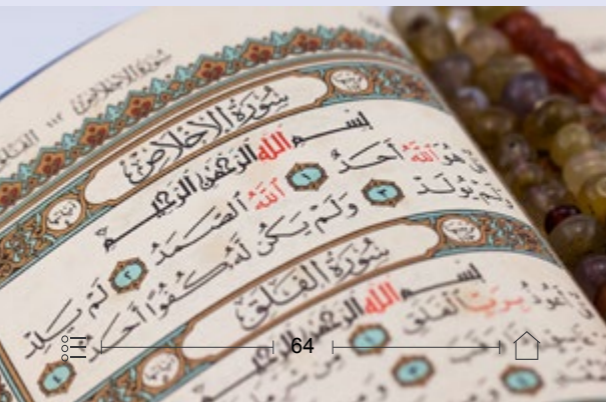 سُورَةُ الإِخْلَاصِ
سُورَةُ الإِخْلَاصِ
بِسْمِ اللَّهِ الرَّحْمَٰنِ الرَّحِيمِ
هُوَ اللَّهُ أَحَدٌ ١ اللَّهُ الصَّمَدُ ٢ لَمْ يَلِدْ
وَلَمْ يُولَدْ ٣ وَلَمْ يَكُن لَّهُ كُفُوًا أَحَدٌ ٤
سُورَةُ الفَلَقِ
بِسْمِ اللَّهِ الرَّحْمَٰنِ الرَّحِيمِ
أَعُوذُ بِرَبِّ الْفَلَقِ ١
64